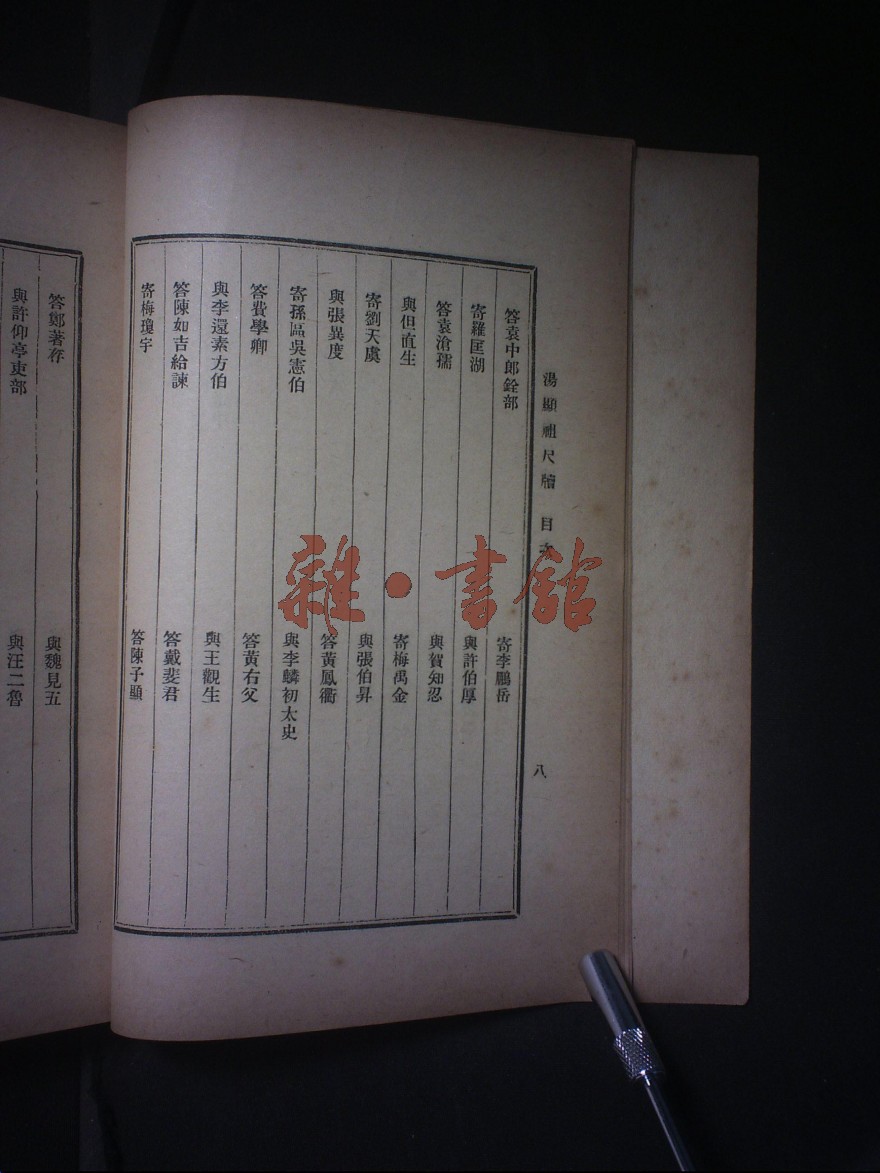 湯顯祖尺牘 目次
八
答袁中郎銓部
寄李鵬岳
寄羅匡湖
與許伯厚
答袁滄孺
與賀知忍
與但直生
寄梅禹金
寄劉天虞
與張伯昇
與張異度
答黃鳳衢
寄孫區吳憲伯
與李麟初太史
答費學卿
答黃右父
與李還素方伯
與王觀生
答陳如吉給諫
答戴斐君
寄梅瓊宇
答陳子顯
答鄭著存
與魏見五
與許仰亭吏部
與汪二魯
雜·書館